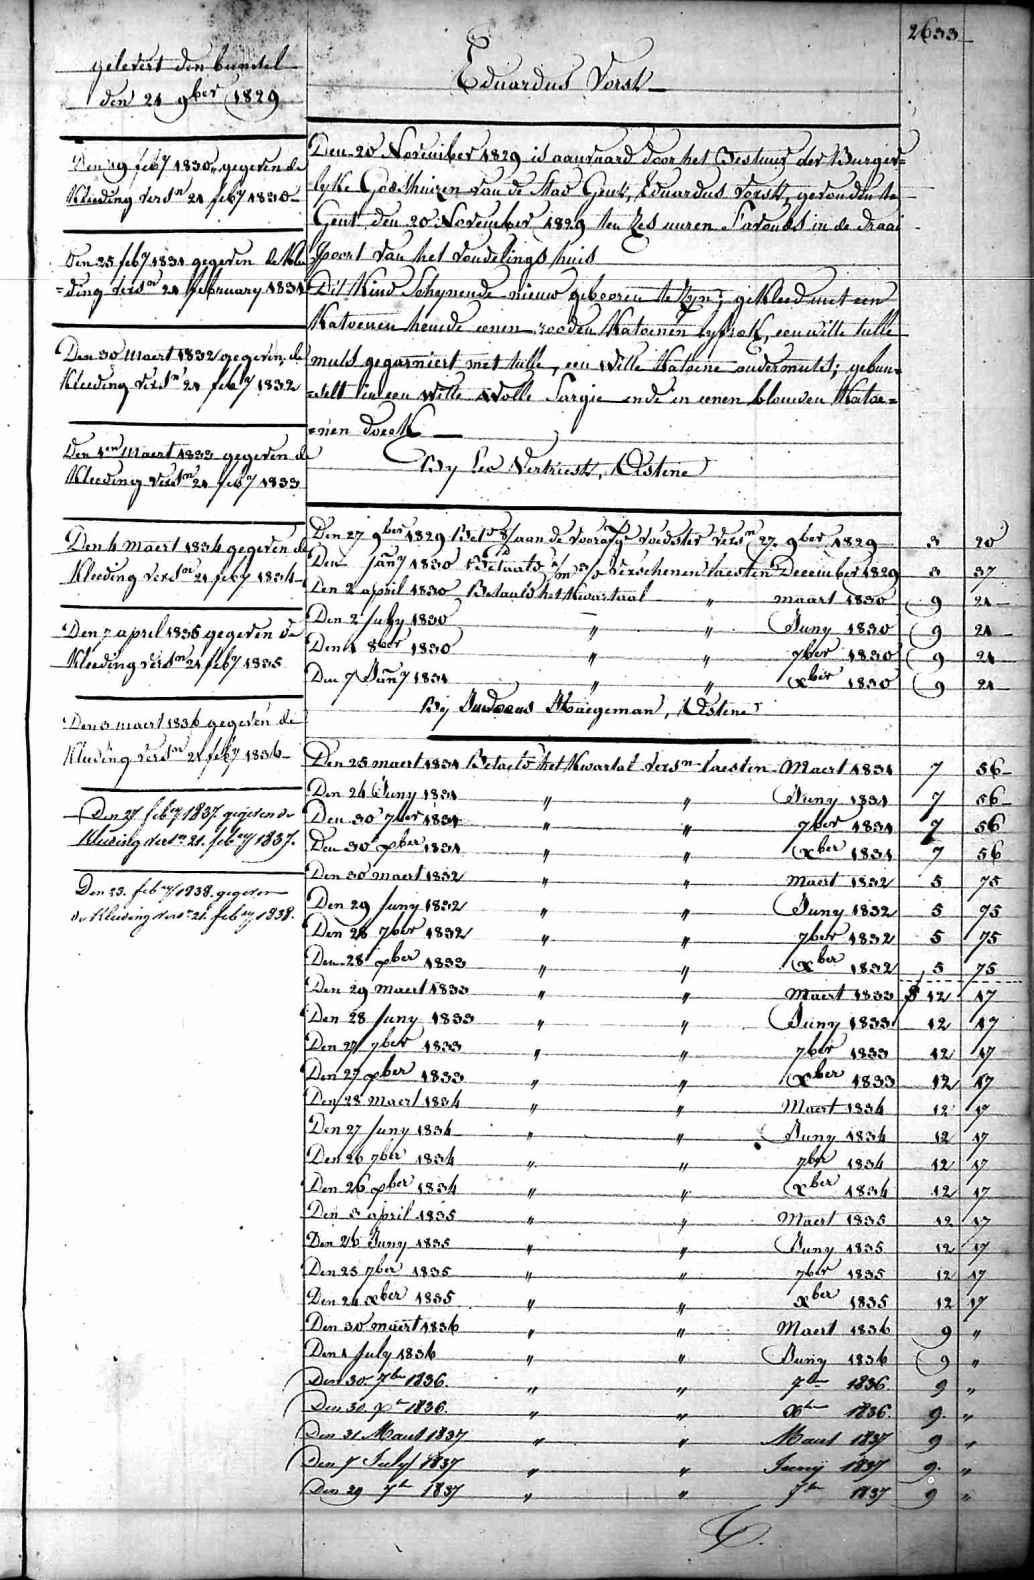 2633
gelevert den bundel
den 21 9ber 1829
Den 19 feby 1830 gegeven de
Kleeding versn 21 feby 1830
Den 25 feby 1831 gegeven de Klee
=ding versn 21 february 1831
Den 30 Maert 1832 gegeven de
Kleeding versn 21 feby 1832
Den 1en Maert 1833 gegeven de
Kleeding versn 21 feby 1833
Den 4 Maert 1834 gegeven de
Kleeding versn 21 feby 1834
Den 7 april 1835 gegeven de
Kleeding versn 21 feby 1835
Den 3 maert 1836 gegeven de
Kleeding versn 21 feby 1836
Den 27 febry 1837 gegeven de
Kleeding versn 21. febry 1837.
Den 23. febry 1838. gegeven
de Kleeding versn 21. febry 1838.
Eduardus Vorst
Den 20 November 1829 is aanvaard door het Bestuur der Burger=
lyke Godshuizen van de Stad Gent, Eduardus Vorst, gevonden te
Gent den 20 November 1829 ten zes uuren s'avonds in de draai
poort van het vondelings huis
Dit Kind schynende nieuw gebooren te zyn, gekleed met een
Katoenen hemde eenen rooden Katoenen lyfrok, een witte tulle
muts gegarniert met tulle, een witte Katoene ondermuts; gebun=
=delt in een witte wolle Sargie ende in eenen blauwen Katoe=
=nen doeck
By Leo Vertriest, Astene
Den 27 9ber 1829 Bets aan de voorafge voedster versn 27 9ber 1829 3 20
Den Jany 1830 Betaald verschenen laesten December 1829 3 37
Den 2 april 1830 Betaald het Kwartaal " maart 1830 9 21
Den 2 July 1830 " " Juny 1830 9 21
Den 1 8ber 1830 " " 7ber 1830 9 21
Den 7 Jany 1831 " " xber 1830 9 21
By Judocus Haegeman, Astene
Den 25 maert 1831 Betaeld het Kwartal versn laesten Maert 1831 7 56
Den 24 Juny 1831 " " Juny 1831 7 56
Den 30 7ber 1831 " " 7ber 1831 7 56
Den 30 xber 1831 " " xber 1831 7 56
Den 30 maert 1832 " " Maert 1832 5 75
Den 29 Juny 1832 " " Juny 1832 5 75
Den 28 7ber 1832 " " 7ber 1832 5 75
Den 28 xber 1833 " " xber 1832 5 75
Den 29 maert 1833 " " Maert 1833 12 17
Den 28 Juny 1833 " " Juny 1833 12 17
Den 27 7ber 1833 " " 7ber 1833 12 17
Den 27 xber 1833 " " xber 1833 12 17
Den 28 maert 1834 " " Maert 1834 12 17
Den 27 Juny 1834 " " Juny 1834 12 17
Den 26 7ber 1834 " " 7ber 1834 12 17
Den 26 xber 1834 " " xber 1834 12 17
Den 3 april 1835 " " Maert 1835 12 17
Den 26 Juny 1835 " " Juny 1835 12 17
Den 25 7ber 1835 " " 7ber 1835 12 17
Den 24 xber 1835 " " xber 1835 12 17
Den 30 maert 1836 " " Maert 1836 9 "
Den 1 July 1836 " " Juny 1836 9 "
Den 30. 7br 1836. " " 7br 1836 9 "
Den 30. xr 1836. " " xbr 1836. 9. "
Den 31 Maert 1837 " " Maert 1837 9 "
Den 7 July 1837 " " Junij 1837 9. "
Den 29 7br 1837 " " 7br 1837 9 "